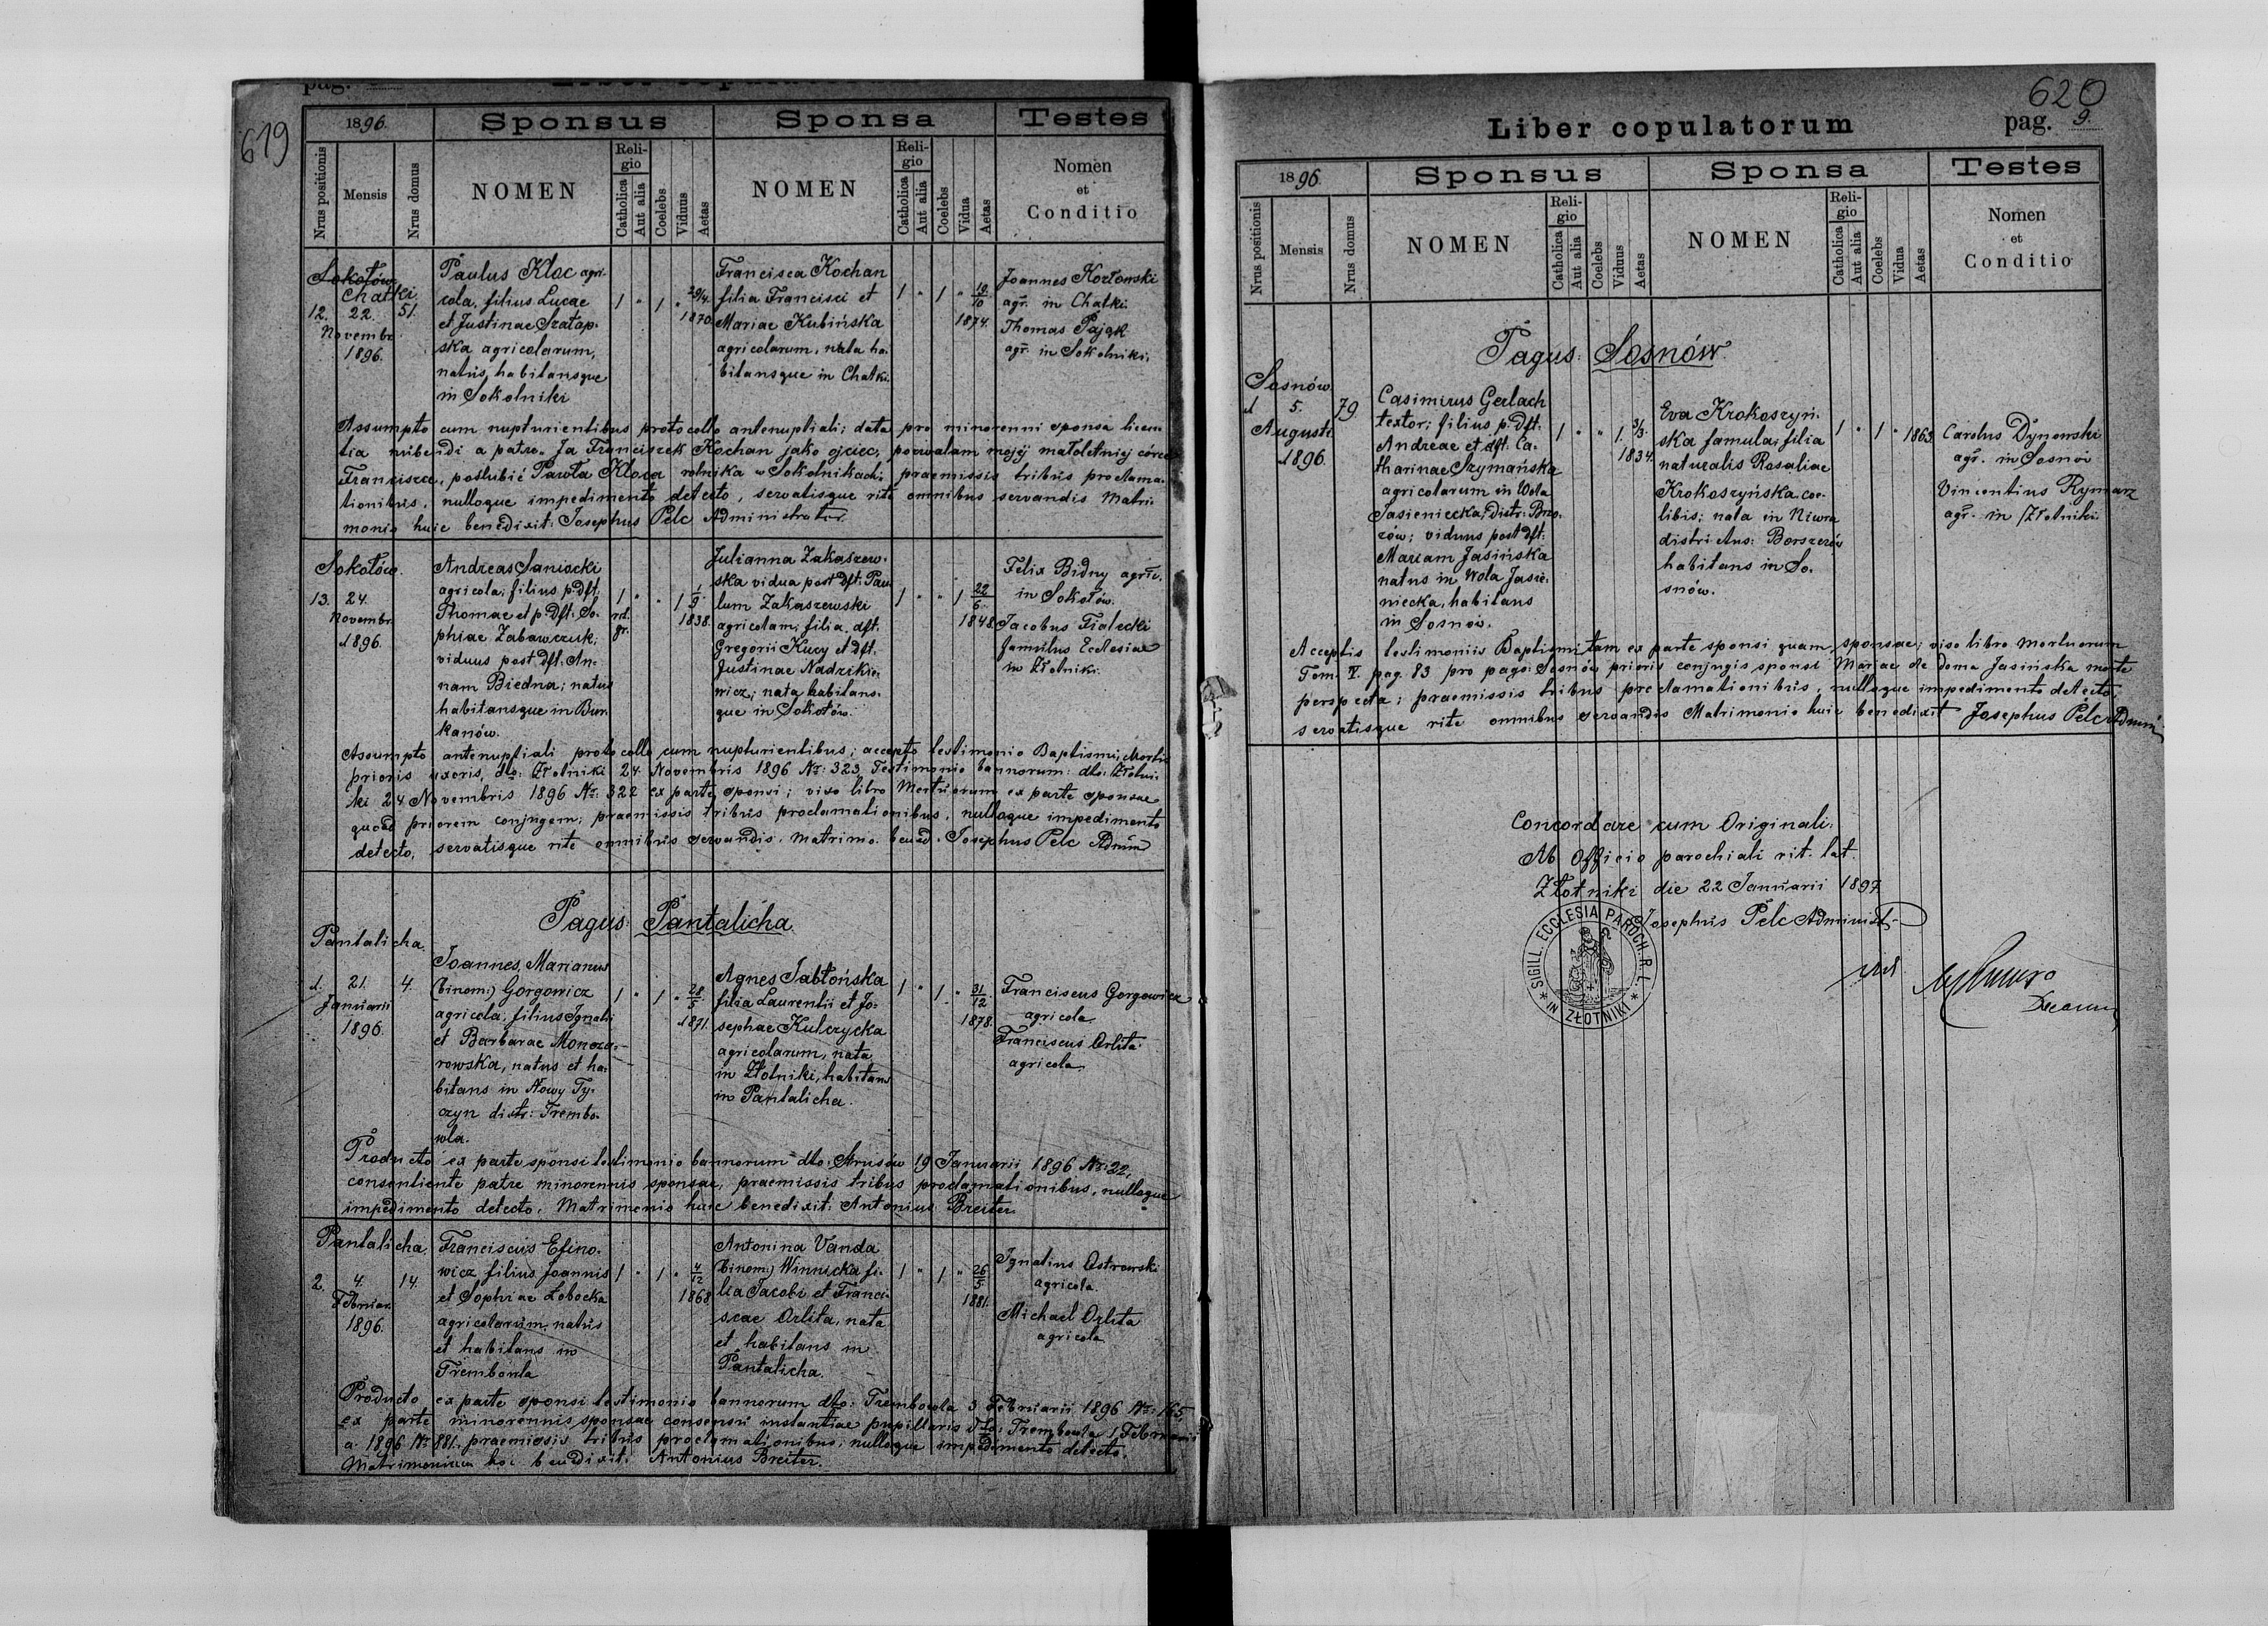 619
pag.
1896.
Sponsus
Sponsa
Testes
Nrus positionis
Mensis
Nrus domus
NOMEN
Religio
Catholica
Aut alia
Coelebs
Viduus
Aetas
NOMEN
Religio
Catholica
Aut alia
Coelebs
Vidua
Aetas
Nomen
et
Conditio
Sokołów
Chatki.
12. 22. 51.
Novembr.
1896.
Paulus Kloc agri-
cola, filius Lucae
et Justinae Szatap-
ska agricolarum,
natus, habitansque
in Sokolniki
1 " 1 " 29/4.
1870.
Francisca Kochan
filia Francisci et
Mariae Kubińska
agricolarum, nata ha-
bitansque in Chatki.
1 " 1 " 19/10
1874.
Joannes Kozłowski
agr. in Chatki.
Thomas Pająk
agr. in Sokolniki.
Assumpto cum nupturientibus protocollo antenuptiali; data pro minorenni sponsa licen-
tia nubendi a patre. Ja Franciszek Kochan jako ojciec, pozwalam mojej małoletniej córce
Franciszce, poślubić Pawła Kloca rolnika w Sokolnikach, praemissis tribus proclama-
tionibus, nulloque impedimento detecto, servatisque rite omnibus servandis Matri-
monio huic benedixit: Josephus Pelc Administrator
Sokołów.
13. 24.
Novembr.
1896.
Andreas Saniocki
agricola; filius p. dft.
Thomae et p. dft. So-
phiae Zabawczuk;
viduus post dft. An-
nam Biedna; natus
habitansque in Bur-
kanów.
1 " " 1 1/9
rit.
gr.
1838.
Julianna Zakaszew-
ska vidua post dft. Pau-
lum Zakaszewski
agricolam; filia dft.
Gregorii Kucy et dft.
Justinae Nadzikie-
wicz; nata habitans-
que in Sokołów.
1 " " 1 22/6.
1848.
Felix Bidny agric.
in Sokołów.
Jacobus Fialecki
famulus Ecclesiae
in Złotniki.
Assumpto antenuptiali protocollo cum nupturientibus; accepto testimonio Baptismi, Mortis
prioris uxoris, dto: Złotniki 24 Novembris 1896 Nr: 323 Testimonio bannorum: dto: Złotni-
ki 24 Novembris 1896 Nr: 322 ex parte sponsi; viso libro Mortuorum ex parte sponsae
quoad priorem conjugem; praemissis tribus proclamationibus, nulloque impedimento
detecto, servatisque rite omnibus servandis. Matrimo. bened. Josephus Pelc Admin
Pagus: Pantalicha.
Pantalicha.
1. 21. 4.
Januarii
1896.
Joannes, Marianus
(binom:) Gorgowicz
agricola, filius Ignatii
et Barbarae Moncza-
rowska, natus et ha-
bitans in Nowy Ty-
czyn distr: Trembo-
wla.
1 " 1 " 28/5.
1871.
Agnes Jabłońska
filia Laurentii et Jo-
sephae Kulczycka
agricolarum, nata
in Złotniki, habitans
in Pantalicha.
1 " 1 " 31/12.
1878.
Franciscus Gorgowicz
agricola
Franciscus Orlita
agricola.
Producto ex parte sponsi testimonio bannorum dto: Strusów 19 Januarii 1896 Nr: 22,
consentiente patre minorennis sponsae, praemissis tribus proclamationibus, nulloque
impedimento detecto. Matrimonio huic benedixit: Antonius Breiter.
Pantalicha.
2. 4. 14.
Februar.
1896.
Franciscus Efino-
wicz filius Joannis
et Sophiae Łobocka
agricolarum, natus
et habitans in
Trembowla
1 " 1 " 4/12
1868
Antonina Vanda
(binom:) Winnicka fi-
lia Jacobi et Franci-
scae Orlita, nata
et habitans in
Pantalicha.
1 " 1 " 26/5
1881.
Ignatius Ostrowski
agricola.
Michael Orlita
agricola
Producto ex parte sponsi testimonio bannorum dto: Trembowla 3 Februarii 1896 Nr: 165,
ex parte minorennis sponsae consensu instantiae pupillaris dto: Trembowla 1 Februarii
a. 1896 Nr 881. praemissis tribus proclamationibus; nulloque impedimento detecto.
Matrimonium hoc benedixit: Antonius Breiter.
620
Liber copulatorum
pag. 9.
1896.
Sponsus
Sponsa
Testes
Nrus positionis
Mensis
Nrus domus
NOMEN
Religio
Catholica
Aut alia
Coelebs
Viduus
Aetas
NOMEN
Religio
Catholica
Aut alia
Coelebs
Vidua
Aetas
Nomen
et
Conditio
Pagus: Sosnów.
Sosnów
1 5. 79.
Augusti
1896.
Casimirus Gerlach
textor; filius p. dft.
Andreae et dft. Ca-
tharinae Szymańska
agricolarum in Wola
Jasieniecka, Distr: Brzo-
zów; viduus post dft:
Mariam Jasińska
natus in Wola Jasie-
niecka, habitans
in Sosnów.
1 " " 1. 3/3.
1834.
Eva Krokoszyń-
ska famula; filia
naturalis Rosaliae
Krokoszyńska coe-
libis; nata in Niwra
districtus: Borszczów
habitans in So-
snów.
1 " 1 " 1863.
Carolus Dynowski
agr. in Sosnów
Vincentius Rymarz
agr. in Złotniki.
Acceptis testimoniis Baptismi tam ex parte sponsi quam sponsae; viso libro mortuorum
Tom: IV. pag. 83 pro pago: Sosnów prioris conjugis sponsi Mariae de domo Jasińska morte
perspecta; praemissis tribus proclamationibus, nulloque impedimento detecto,
servatisque rite omnibus servandis Matrimonio huic benedixit Josephus Pelc Admin
Concordare cum Originali.
Ab Officio parochiali rit. lat.
Złotniki die 22 Januarii 1897
Josephus Pelc Administ.
SIGILL. ECCLESIA PAROCH. R. L.
IN ZŁOTNIKI